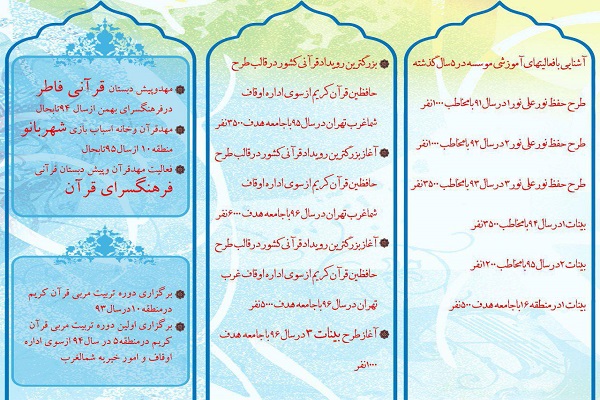 آشنایی با فعالیتهای آموزشی موسسه در ۵ سال گذشته
طرح حفظ نور علی نور ۱ در سال ۹۱ با مخاطب ۱۰۰۰نفر
طرح حفظ نور علی نور ۲ در سال ۹۲ با مخاطب ۱۰۰۰نفر
طرح حفظ نور علی نور ۳ در سال ۹۳ با مخاطب ۳۵۰۰نفر
بینات ۱ در سال ۹۴ با مخاطب ۳۵۰۰نفر
بینات ۲ در سال ۹۵ با مخاطب ۱۲۰۰نفر
بینات ۱ در منطقه ۱۶ با جامعه هدف ۵۰۰نفر
بزرگترین رویداد قرآنی کشور در قالب طرح
حافظین قرآن کریم از سوی اداره اوقاف
شماغرب تهران در سال ۹۵ با جامعه هدف ۳۵۰۰نفر
آغاز بزرگترین رویداد قرآنی کشور در قالب طرح
حافظین قرآن کریم از سوی اداره اوقاف
شماغرب تهران در سال ۹۶ با جامعه هدف ۶۰۰۰نفر
آغاز بزرگترین رویداد قرآنی کشور در قالب طرح
حافظین قرآن کریم از سوی اداره اوقاف غرب
تهران در سال ۹۶ با جامعه هدف ۵۰۰نفر
آغاز طرح بینات ۳ در سال ۹۶ با جامعه هدف
۱۰۰۰نفر
مهدوپیش دبستان قرآنی فاطر
در فرهنگسرای بهمن از سال ۹۴ تابحال
مهدقرآن وخانه اسباب بازی شهربانو
منطقه ۱۰ ازسال ۹۵ تابحال
فعالیت مهدقرآن وپیش دبستان قرآنی
فرهنگسرای قرآن
برگزاری دوره تربیت مربی قرآن کریم
درمنطقه ۱۰ درسال ۹۳
برگزاری اولین دوره تربیت مربی قرآن
کریم درمنطقه ۵ در سال ۹۴ ازسوی اداره
اوقاف و امور خیریه شمالغرب